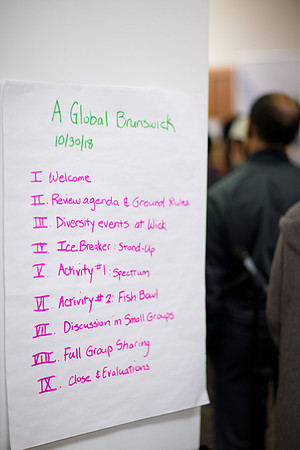 A Global Brunswick
10/30/18
I Welcome
II. Review agenda & Ground Rules
III Diversity events at Wick
IV Ice Breaker: Stand-Up
V Activity #1: Spectrum
VI Activity #2: Fish Bowl
VII. Discussion in Small Groups
VIII. Full Group Sharing
IX. Close & Evaluations